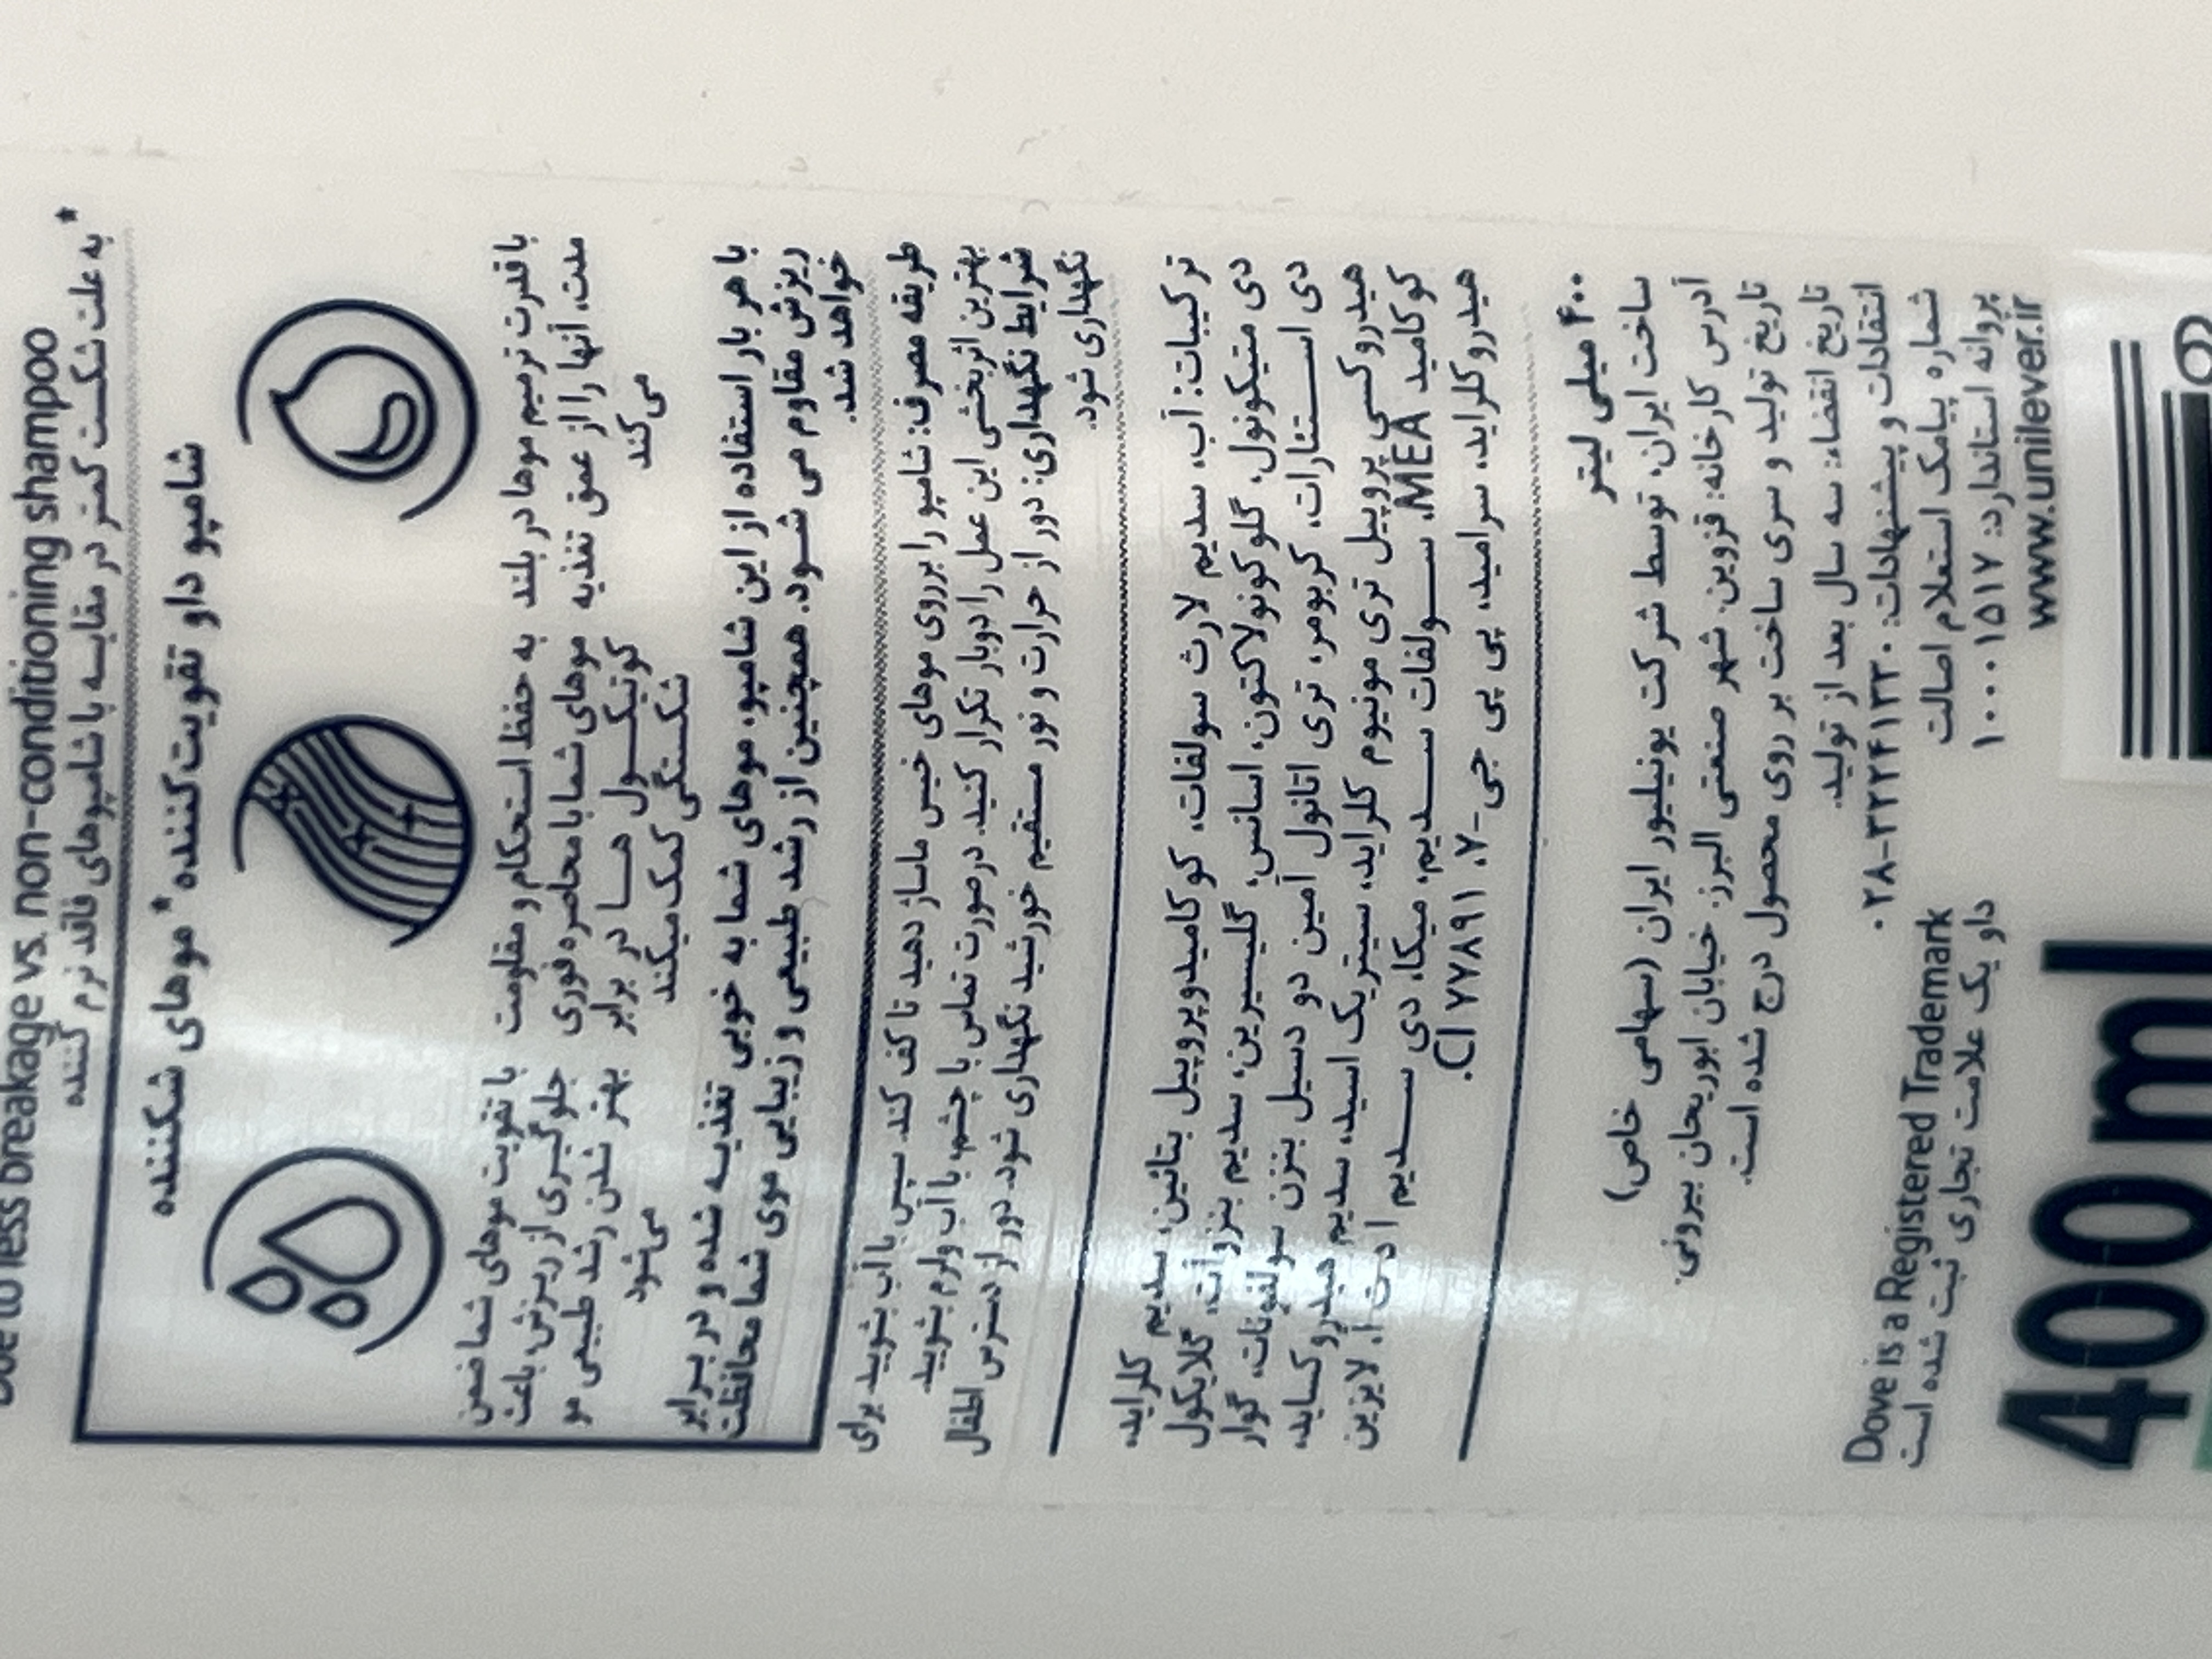 Due to less breakage vs. non-conditioning shampoo
*به علت شکست کمتر در مقایسه با شامپوهای فاقد نرم کننده
شامپو داو تقویت‌کننده* موهای شکننده
با قدرت ترمیم موها در بلند
مدت، آنها را از عمق تغذیه
می‌کند
به حفظ استحکام و مقاومت
موهای شما با محاصره فوری
کوتیکول ها در برابر
شکستگی کمک میکند
با تقویت موهای شما ضمن
جلوگیری از ریزش، باعث
بهتر شدن رشد طبیعی مو
می‌شود
با هر بار استفاده از این شامپو، موهای شما به خوبی تغذیه شده و در برابر
ریزش مقاوم می شود. همچنین از رشد طبیعی و زیبایی موی شما محافظت
خواهد شد.
طریقه مصرف: شامپو را برروی موهای خیس ماساژ دهید تا کف کند. سپس با آب بشویید برای
بهترین اثربخشی این عمل را دوبار تکرار کنید. درصورت تماس با چشم، با آب ولرم بشویید.
شرایط نگهداری: دور از حرارت و نور مستقیم خورشید نگهداری شود. دور از دسترس اطفال
نگهداری شود.
ترکیبات: آب، سدیم لارث سولفات، کوکامیدوپروپیل بتائین، سدیم کلراید،
دی متیکونول، گلوکونولاکتون، اسانس، گلیسیرین، سدیم بنزوآت، گلایکول
دی استئارات، کربومر، تری اتانول آمین دو دسیل بنزن سولفونات، گوار
هیدروکسی پروپیل تری مونیوم کلراید، سیتریک اسید، سدیم هیدروکساید،
کوکامید MEA، سولفات سدیم، میکا، دی سدیم ا د ت ا، لایزین
هیدروکلراید، سرامید، پی پی جی-۷، CI ۷۷۸۹۱.
۴۰۰ میلی لیتر
ساخت ایران، توسط شرکت یونیلیور ایران (سهامی خاص)
آدرس کارخانه: قزوین، شهر صنعتی البرز، خیابان ابوریحان بیرونی.
تاریخ تولید و سری ساخت بر روی محصول درج شده است.
تاریخ انقضاء: سه سال بعد از تولید.
انتقادات و پیشنهادات: ۳۲۲۴۱۳۳۰-۰۲۸
شماره پیامک استعلام اصالت
پروانه استاندارد: ۱۰۰۰۱۵۱۷
www.unilever.ir
Dove is a Registered Trademark
داو یک علامت تجاری ثبت شده است
400 ml